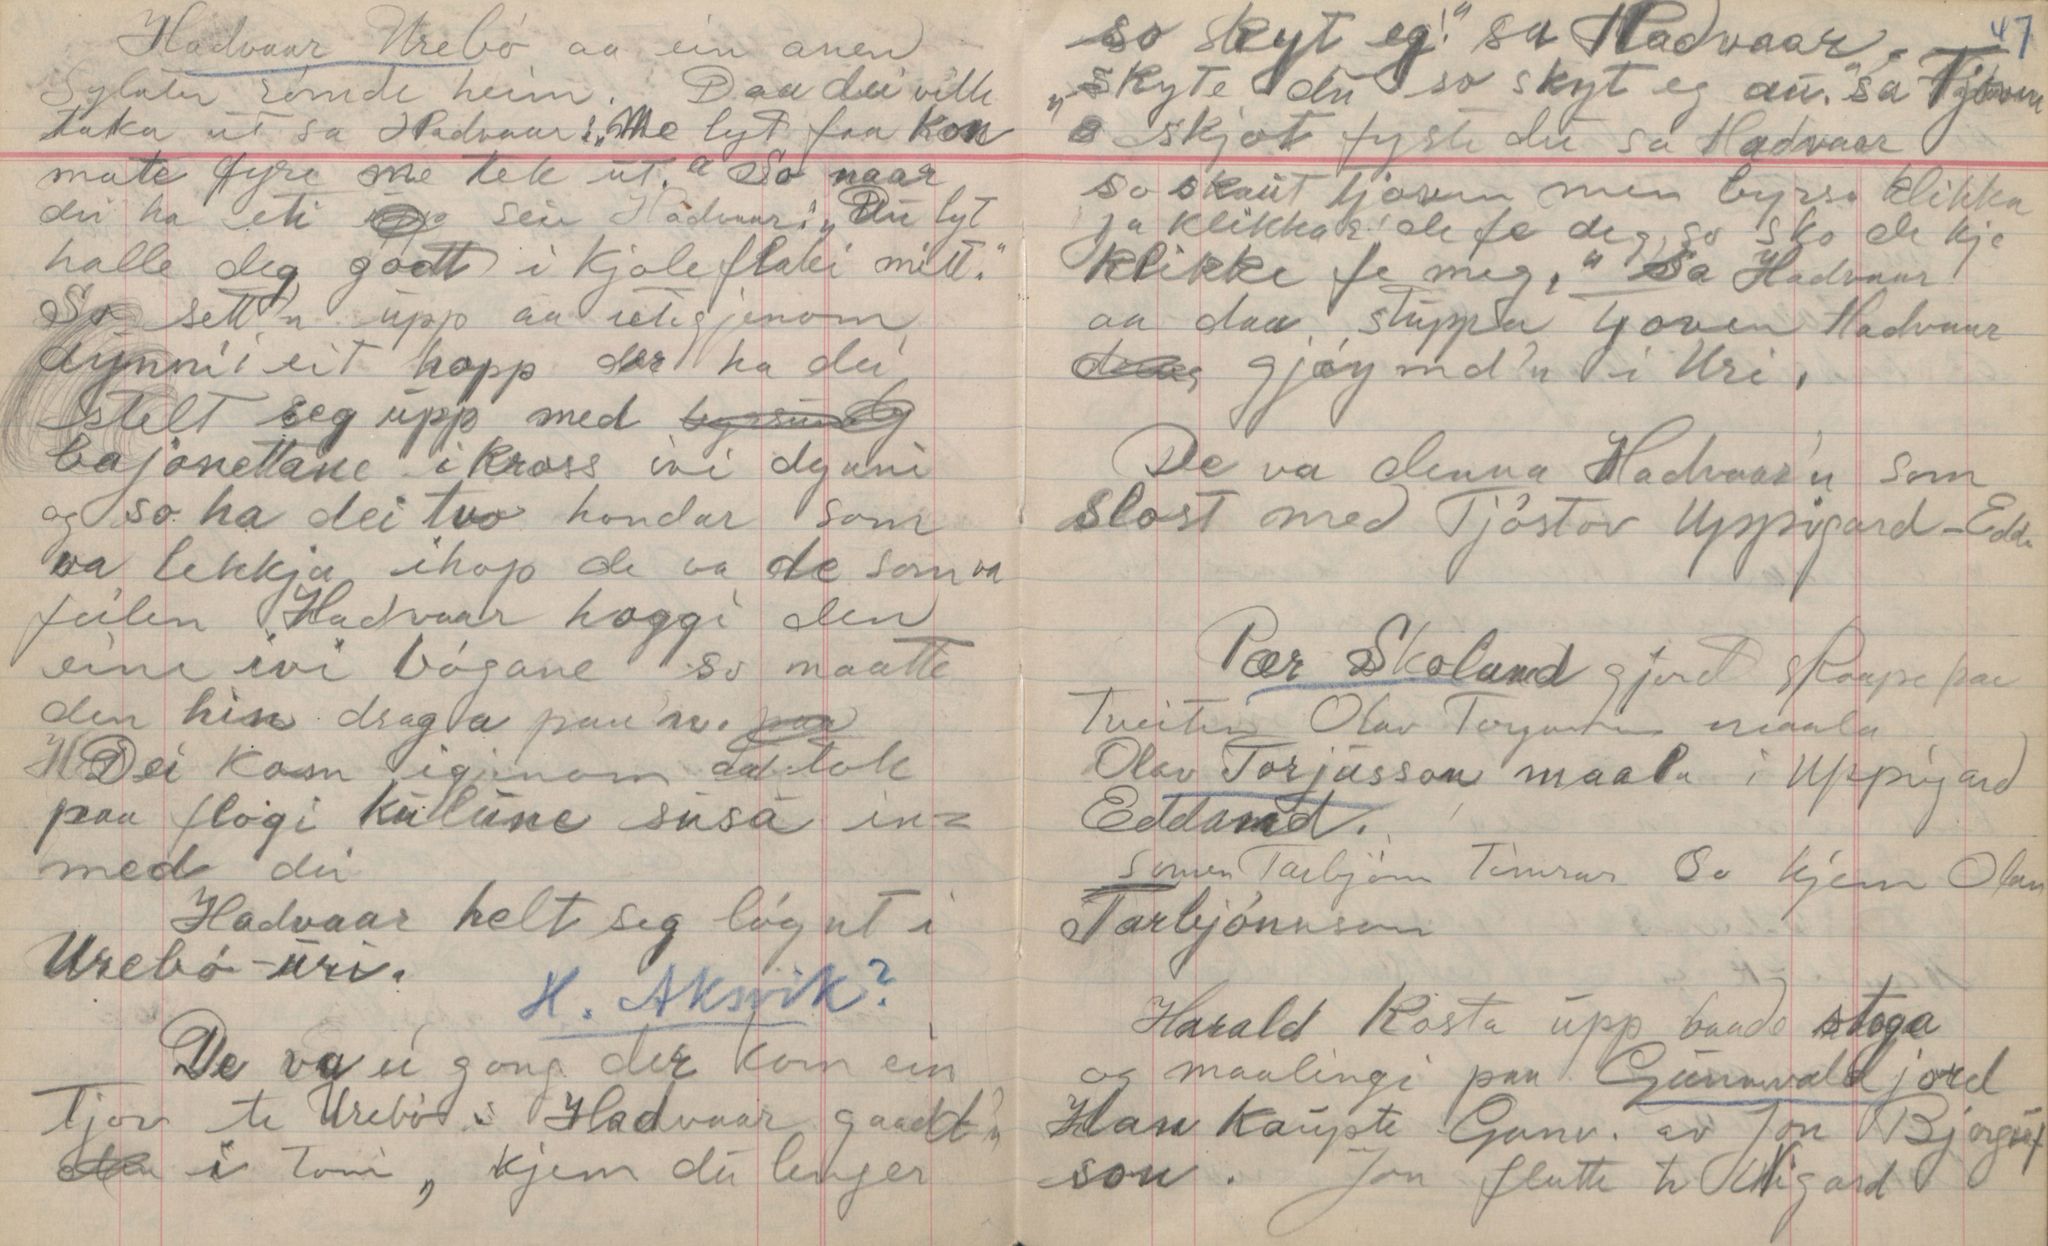 Hadvaar Urebö aa ein anen
Sylater römde heim. Daa dei ville
taka ut sa Hadvaar: "Me lyt faa kon
mate fyre me tek ut." So naar
dei ha eti seie Hadvaar: "Du lyt
halle deg godt i kjoleflaki mitt."
So sett'n upp aa utigjenom
dynni i eit hopp der ha dei
stelt seg upp med
bajonettane i kross ivi dynni
og so ha dei tvo hondar som
va lekkja ihop de va de som va
feilen Hadvaar hoggi den
eine ivi bógane so maatte
den hin draga paa'n.
Dei kom iginom aa tok
paa flogi kulune susa in=
med dei
Hadvaar helt seg lógnt i
Urebó-uri.
H. Aksvik?
De va ei gong der kom ein
tjov te Urebó. Hadvaar gaadd'n
i toni, "kjem du lenger
47
so skyt eg!" sa Hadvaar.
"Skyte du so skyt eg au." sa Tjoven
skjot fyste du sa Hadvaar
so skaut tjoven men byrsa klikka
ja klikkar de fe deg, so sko de kje
klikke fe meg," sa Hadvaar
aa daa stuppa tjoven Hadvaar
gjöymd'n i Uri.
De va denna Hadvaar'n som
slost med Tjöstov Uppigard-Edda
Pær Skoland gjord skaape paa
Tveiten Olav maala
Olav Torjusson maala i Uppigard
Eddand.
sonen Tarbjönn Timrar So kjem Olav
Tarbjönnson
Harald Rosta upp baade stoga
og maalingi paa Gunnvaldjord
Han kaupte Gunv. av Jon Bjorgúf
son. Jon flutte te Nigard